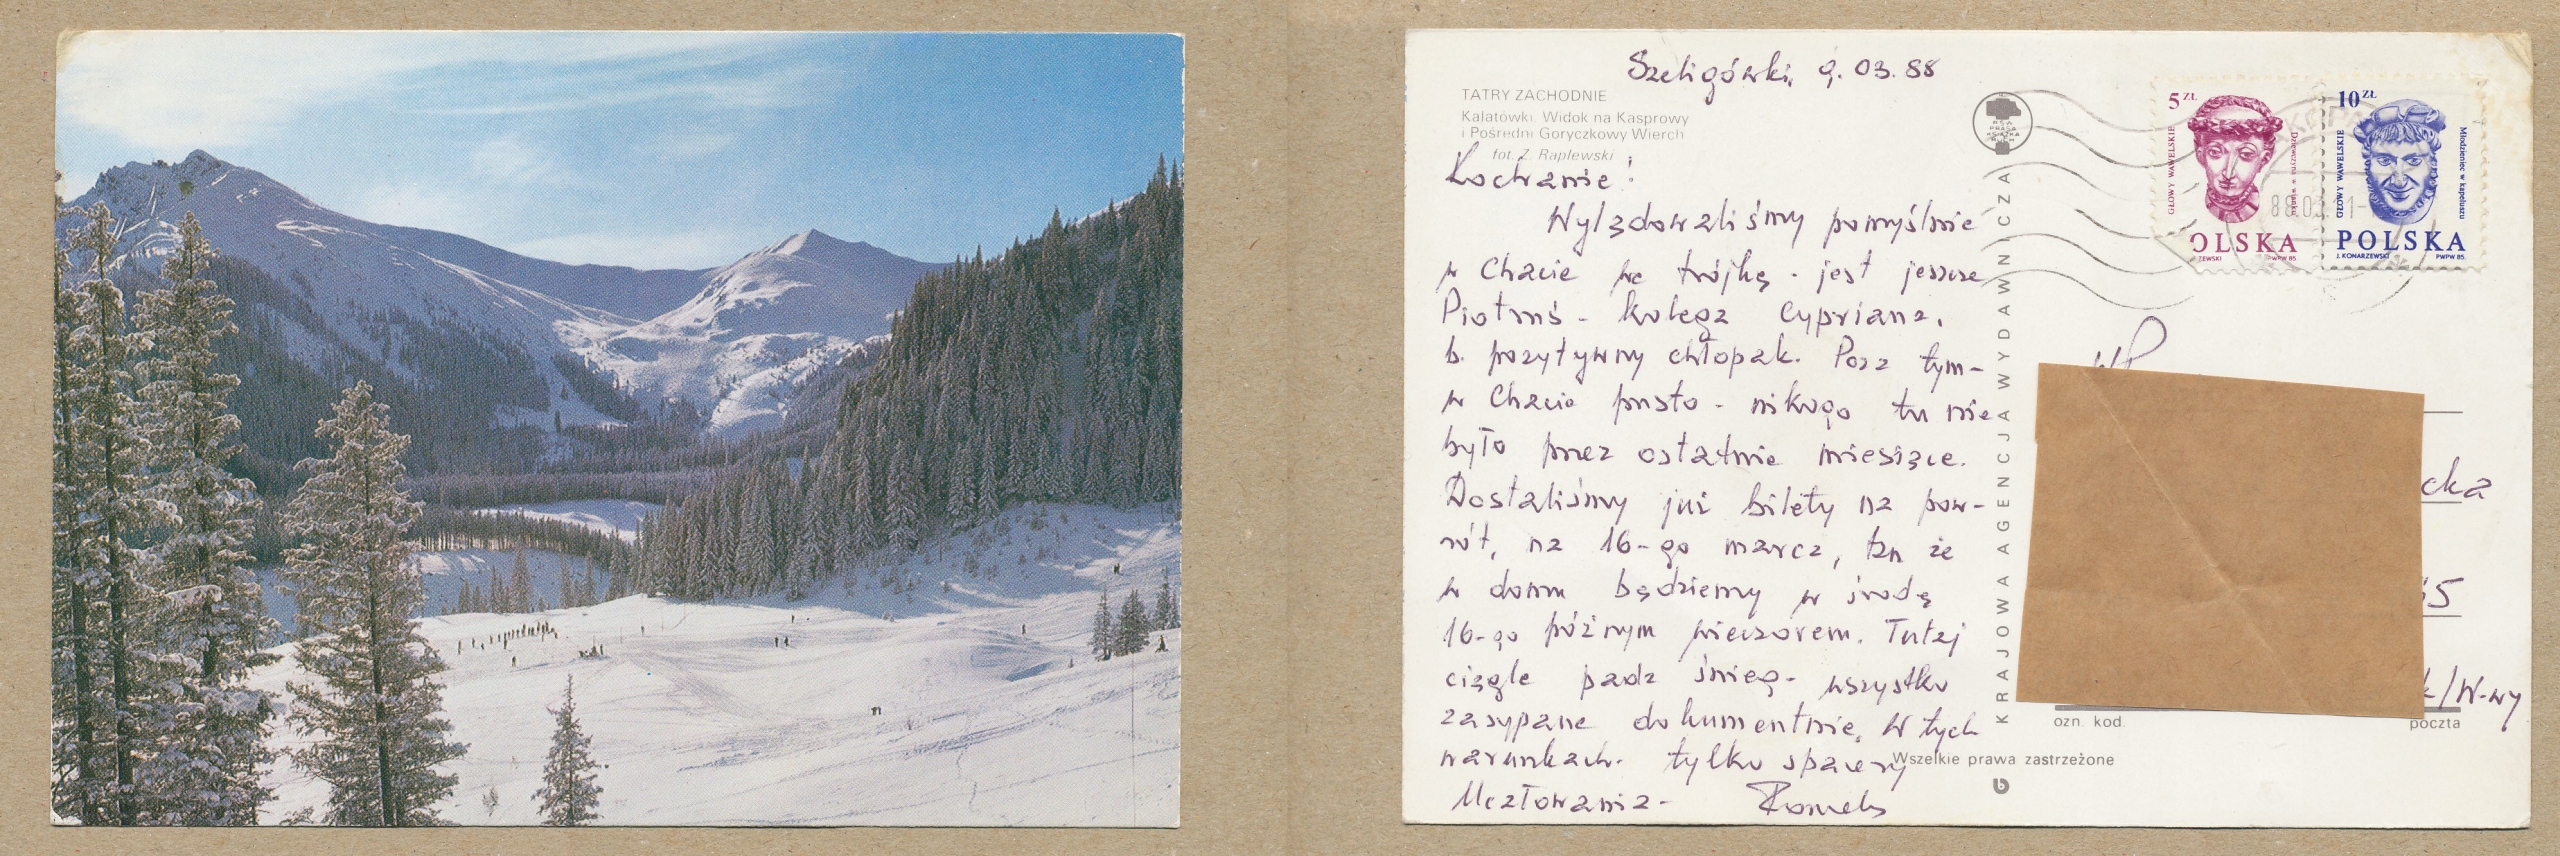 Szeligówki, 9.03.88
TATRY ZACHODNIE
Kalatówki. Widok na Kasprowy
i Pośredni Goryczkowy Wierch
fot. Z. Raplewski
Kochanie!
Wylądowaliśmy pomyślnie
w Chacie we trójkę - jest jeszcze
Piotruś - kolega Cypriana,
b. pozytywny chłopak. Poza tym -
w Chacie pusto - nikogo tu nie
było przez ostatnie miesiące.
Dostaliśmy już bilety na pow-
rót, na 16-go marca, tak że
w domu będziemy w środę
16-go późnym wieczorem. Tutaj
ciągle pada śnieg - wszystko
zasypane dokumentnie. W tych
warunkach - tylko spacery
Ucałowania - Romek
KRAJOWA AGENCJA WYDAWNICZA
RSW
PRASA
KSIĄŻKA
RUCH
5 ZŁ
GŁOWY WAWELSKIE
Dziewczyna w wianku
OLSKA
ZEWSKI PWPW 85
10 ZŁ
GŁOWY WAWELSKIE
Młodzieniec w kapeluszu
POLSKA
J. KONARZEWSKI PWPW 85
88.03.11-
WP
cka
5
k/W-wy
ozn. kod. poczta
Wszelkie prawa zastrzeżone